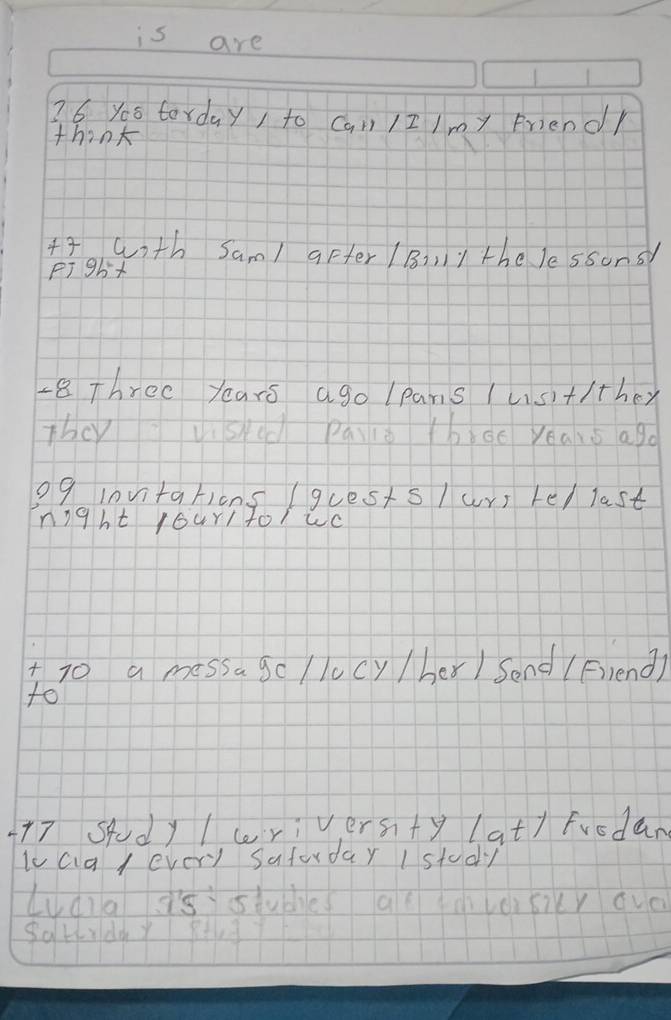 is are
?6 yesterday / to call / I / my Friend /
think
+7 with Sam / after / Bill / the lessons /
Fight
-8 Three years ago / Paris / visit / they
They visited Paris three years ago
?9 invitations / guests / write / last
night / our / to / we
+ 10 a message / lucy / her / send / Friend /
to
-11 study / university / at / Fredan
lucia / every saturday / study
Lucia is studies at university
Saturday